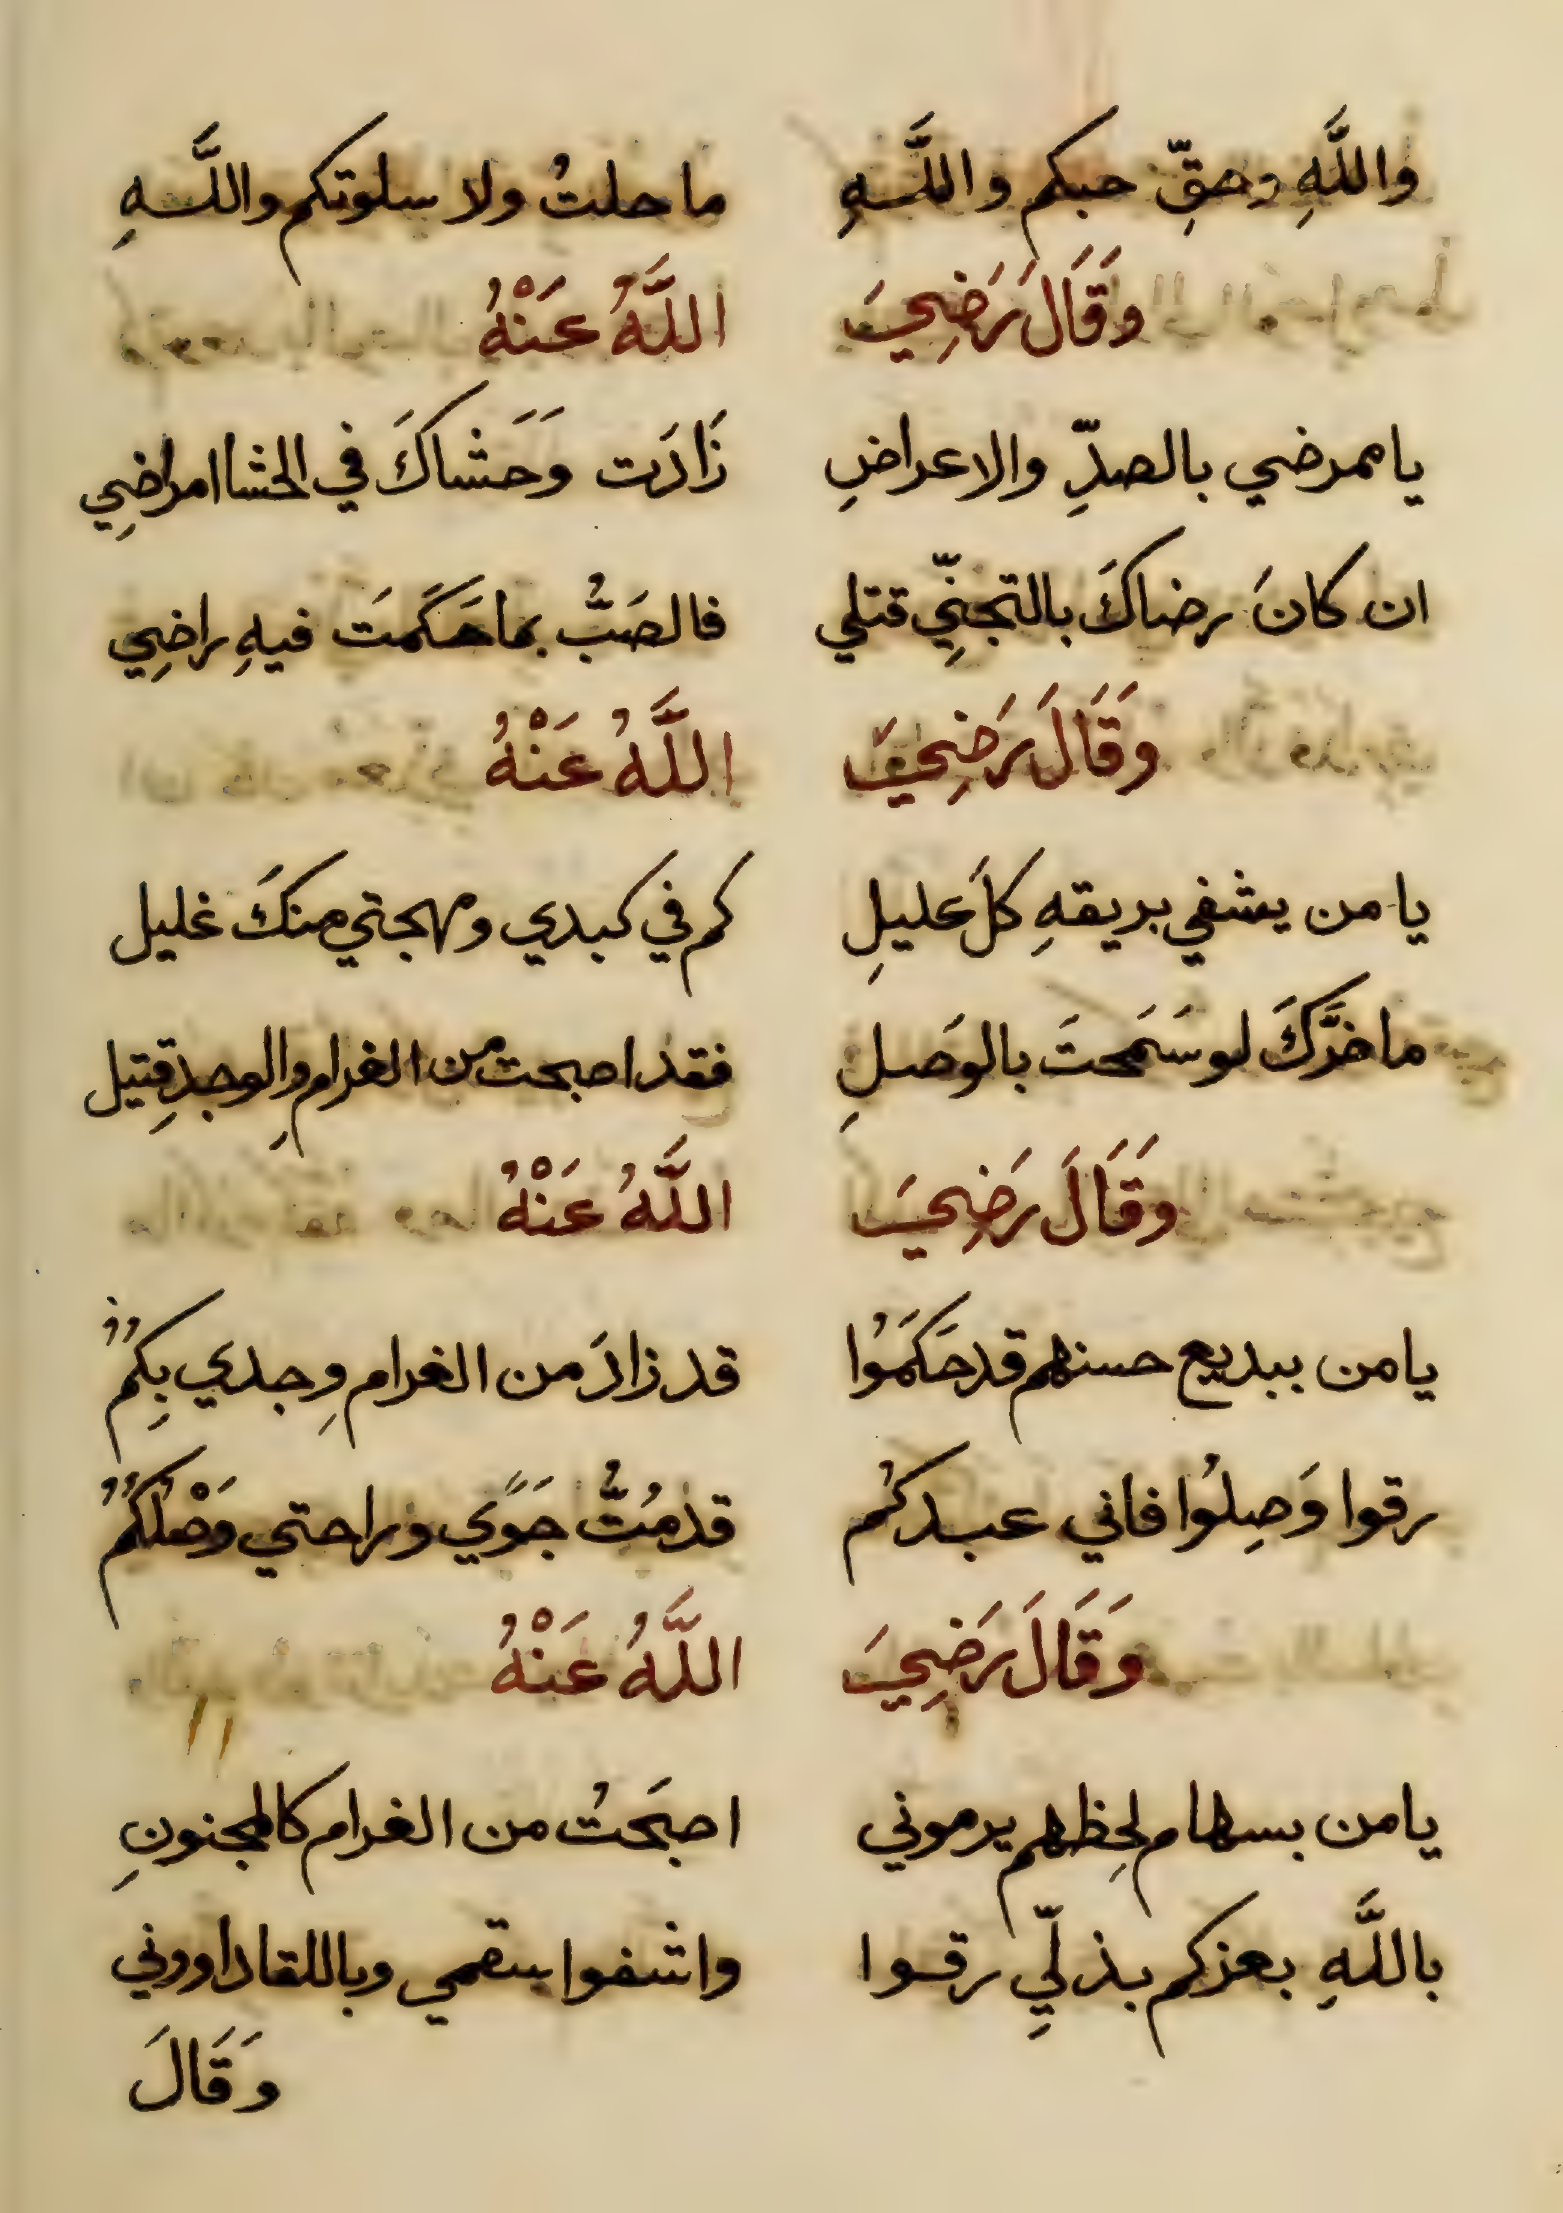 واللَّهِ وحقِّ حبكم واللَّـهِ ما حلتُ ولا سلوتكم واللَّـهِ
وَقَالَ رَضِيَ اللَّهُ عَنْهُ
يا ممرضي بالصدِّ والاعراضِ زَادَت وَحَشاكَ في الحشا امراضِي
ان كانَ رضاكَ بالتجنِّي قتلي فالصَبُّ بما حَكَمتَ فيهِ راضِي
وَقَالَ رَضِيَ اللَّهُ عَنْهُ
يا من يشفي بريقهِ كلَ عليلِ كم في كبدي ومهجتي منكَ غليل
ما ضرَّكَ لو سَمَحتَ بالوَصلِ فقد اصبحت من الغرامِ والوجدِ قتيل
وَقَالَ رَضِيَ اللَّهُ عَنْهُ
يا من ببديع حسنهم قد حَكَمُوا قد زادَ من الغرامِ وجدي بِكُمُ
رقوا وَصِلُوا فاني عبدكُم قد مُتُّ جَوًي وراحتي وَصْلُكُمُ
وَقَالَ رَضِيَ اللَّهُ عَنْهُ
يا من بسهام لحِظهم يرموني اصبَحتُ من الغرام كالمجنونِ
باللَّهِ بعزكم بذلّيِ رقوا واشفوا سقمي وباللقا داووني
وَقَالَ